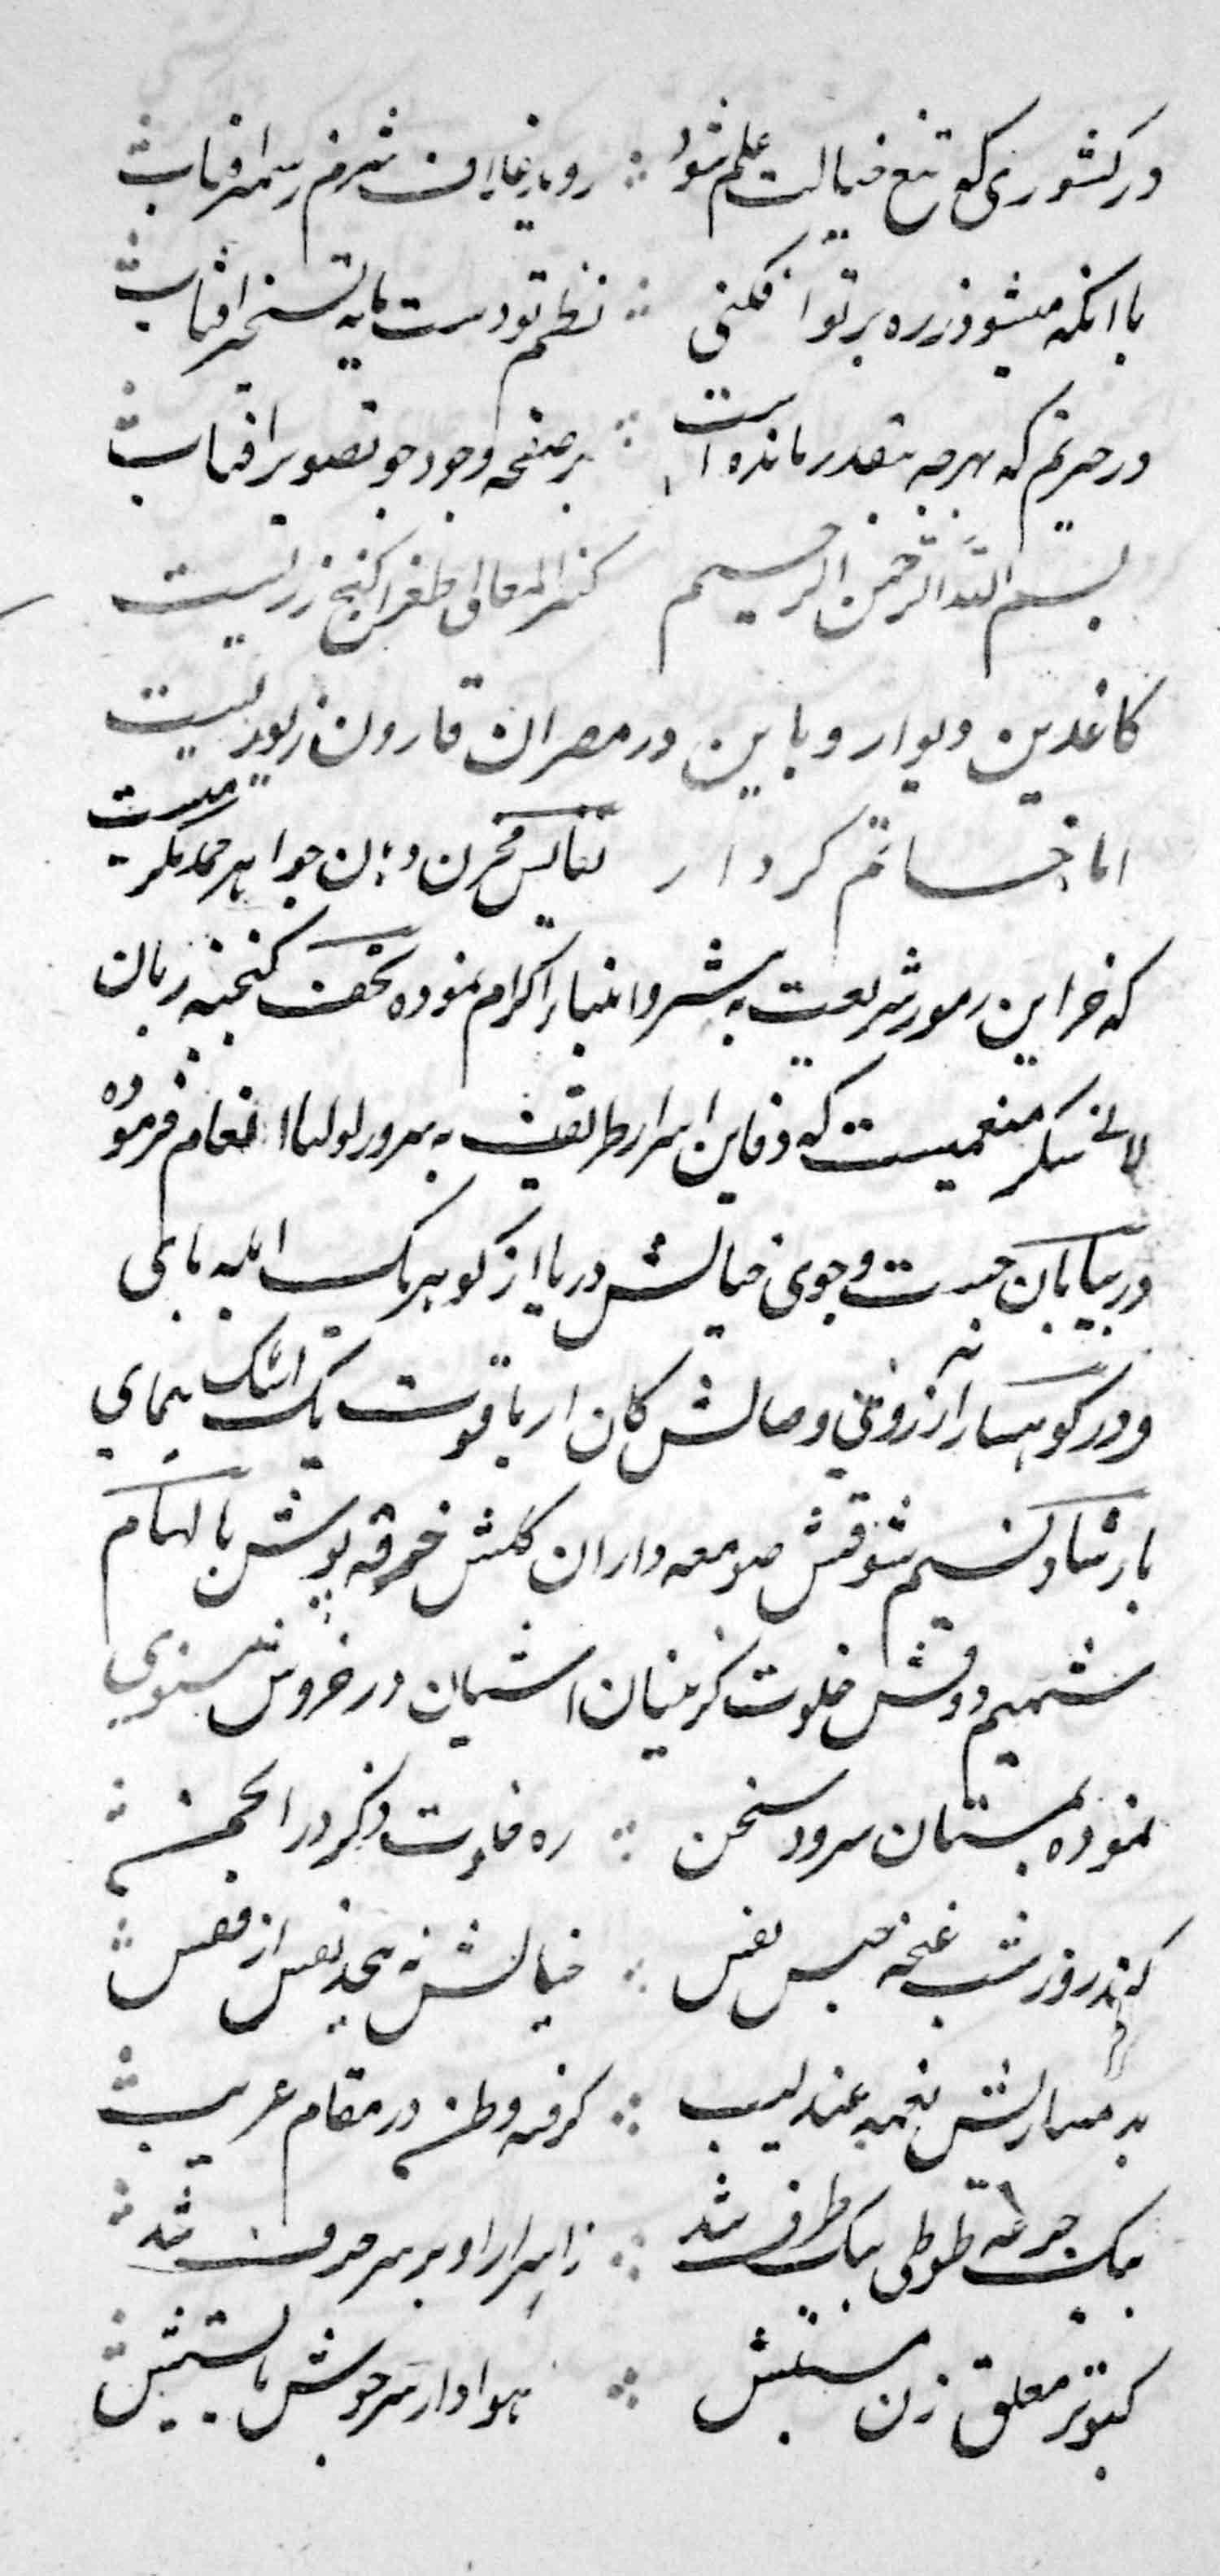 در کشوری که تیغ خیالت علم شود رو بد شرم سپر آفتاب
با آنکه میشود ذره پرتو افکنی نظم تو دست مایه تسخیر آفتاب
در حیرتم که بهر چه بیقدر مانده است بر صفحه وجود چو تصویر آفتاب
بسم الله الرحمن الرحیم کنز المعانی طغرا گنج زریست
کاغذین دیوار و با این در مصران قارون زیوریست
اما خساتم کردار نفایس مخزن دهان جواهر حمد مکرمیست
که خزاین رموز شریعت به بشر و انبیا اکرام نموده تحف گنجینه زبان
لالی شکر منعمیست که دفاین اسرار طریقت به سرور اولیا انعام فرموده
در بیابان جست و جوی خیالش دریا از گوهر یک ابله پای
و در کوهسار آرزوی وصالش کان از یاقوت یک اشک پیمای
بارشاد نسیم شوقش صومعه داران گلشن خرقه پوش بالهام
شمیم ذوقش خلوت گزینان آشیان در خروش مثنوی
نموده بمستان سرود سخن ره خلوت ذکر در انجمن
کند روز شب غنچه حبس نفس خیالش نه بیند نفس از قفس
به مضمارش نغمه عندلیب گرفته وطن در مقام غریب
بیک جرعه طوطی بیک طرف شد ز اسرار او بر سر حرف شد
کبوتر معلق زن مستیش هوادار سرجوش با پستیش